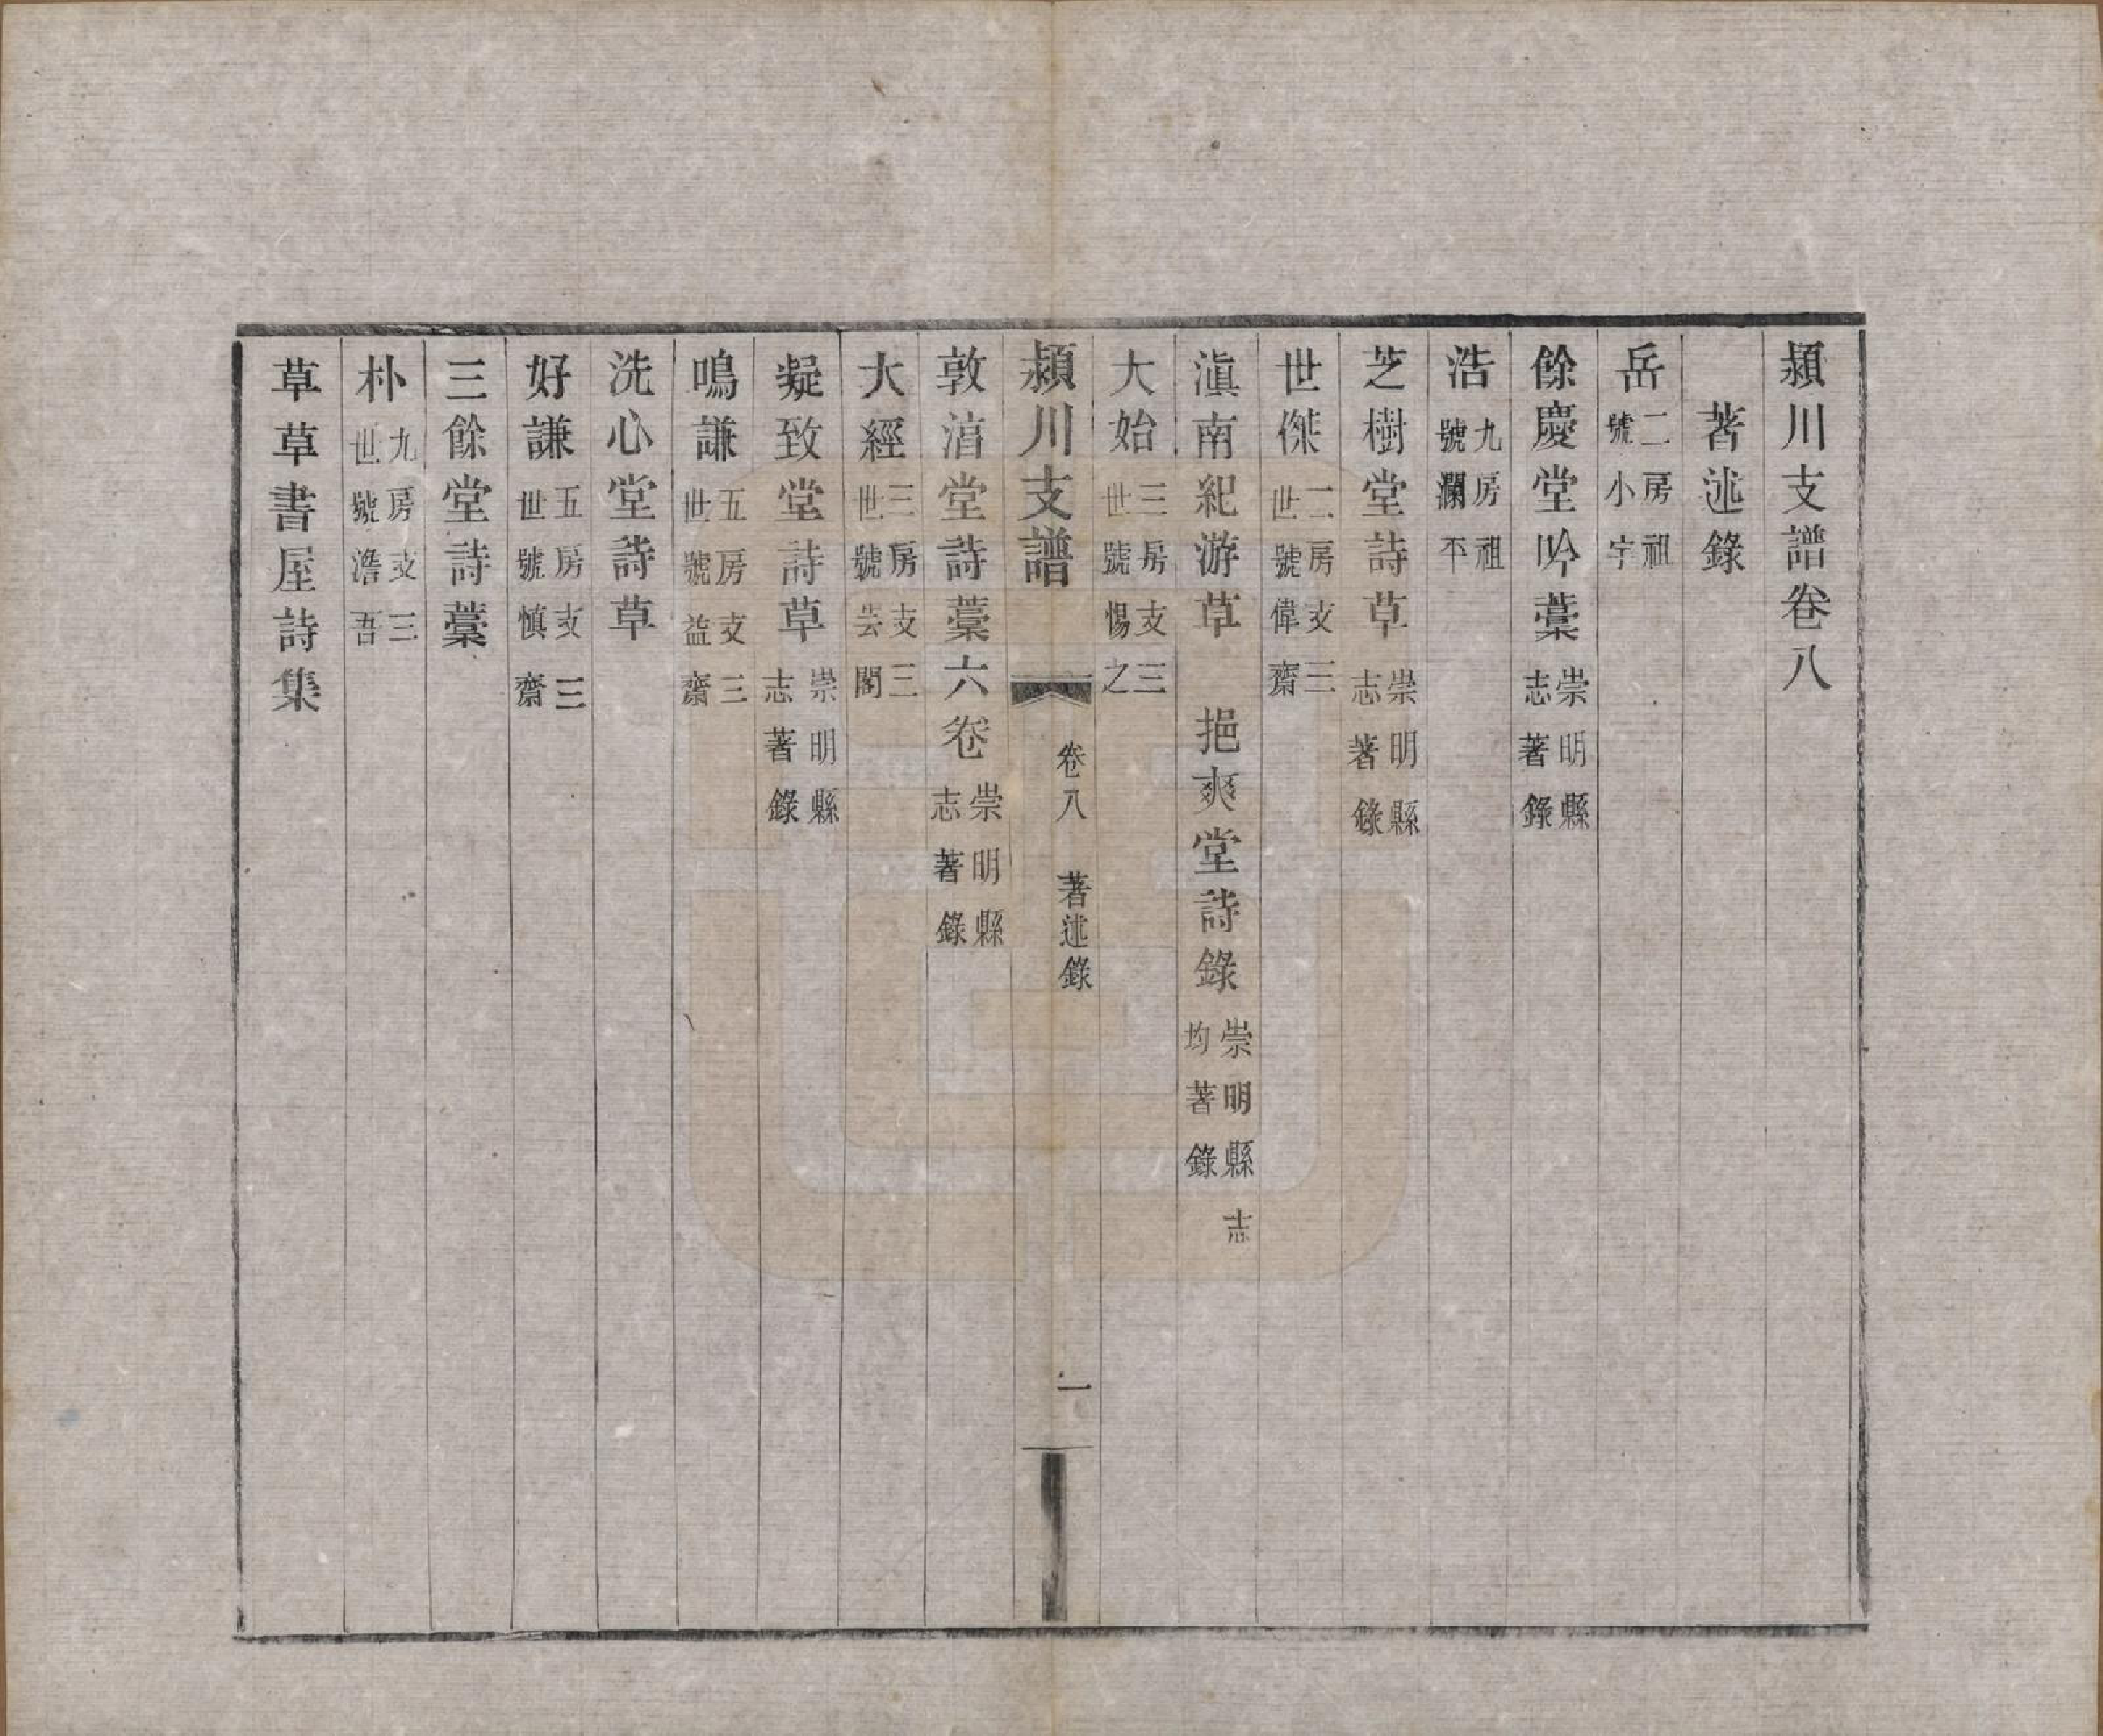 潁川支譜卷八
著述錄
岳二房祖號小宇
餘慶堂吟藳崇明縣志著錄
浩九房祖號瀾平
芝樹堂詩草崇明縣志著錄
世傑二房支三世號偉齋
滇南紀游草 挹爽堂詩錄崇明縣志均著錄
大始三房支三世號惕之
潁川支譜 卷八 著述錄 一
敦淯堂詩藳六卷崇明縣志著錄
大經三房支三世號芸閣
凝致堂詩草崇明縣志著錄
鳴謙五房支三世號益齋
洗心堂詩草
好謙五房支三世號慎齋
三餘堂詩藳
朴九房支三世號澹吾
草草書屋詩集